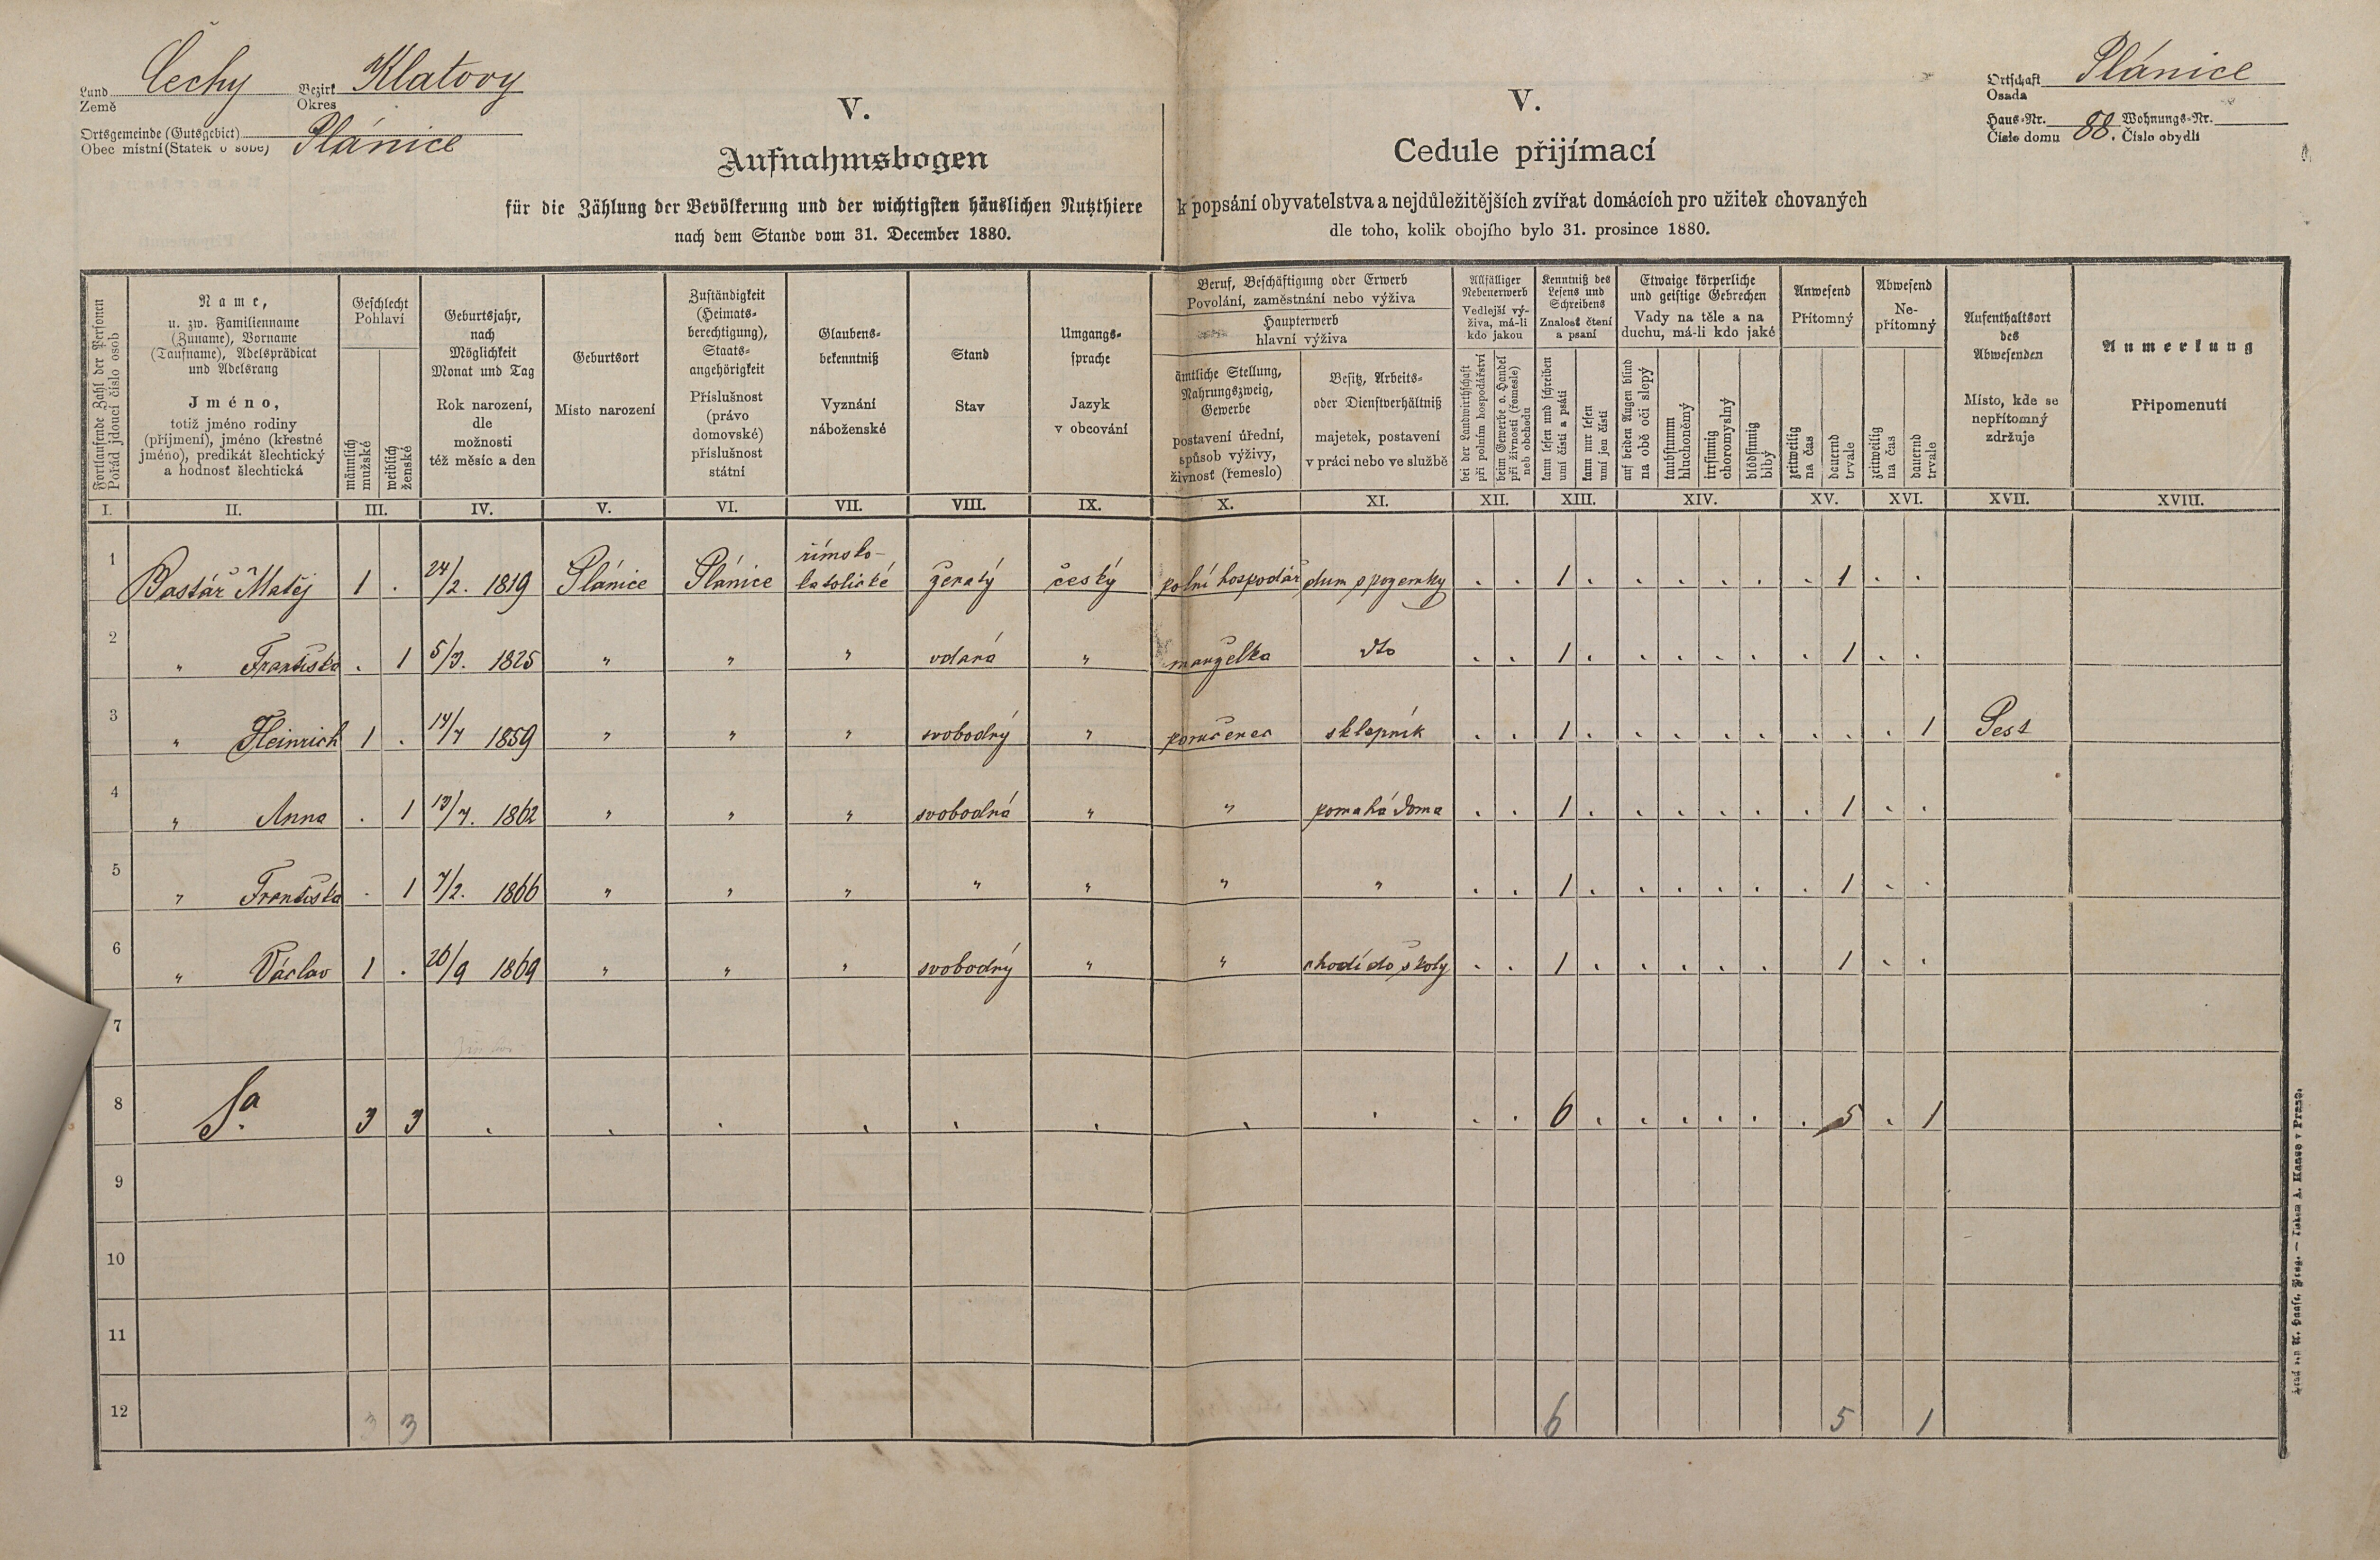 Land Čechy Bezirk Klatovy
Země Okres
Ortsgemeinde (Gutsgebiet) Plánice
Obec místní (Statek o sobě)
V.
Aufnahmsbogen
für die Zählung der Bevölkerung und der wichtigsten häuslichen Nutzthiere
nach dem Stande vom 31. December 1880.
V.
Cedule přijímací
k popsání obyvatelstva a nejdůležitějších zvířat domácích pro užitek chovaných
dle toho, kolik obojího bylo 31. prosince 1880.
Ortschaft Plánice
Osada
Haus-Nr. 88. Wohnungs-Nr.
Číslo domu Číslo obydlí
Fortlaufende Zahl der Personen
Pořád jdoucí číslo osob
Name,
u. zw. Familienname
(Zuname), Vorname
(Taufname), Adelsprädicat
und Adelsrang
Jméno,
totiž jméno rodiny
(příjmení), jméno (křestné
jméno), predikát šlechtický
a hodnost šlechtická
Geschlecht
Pohlaví
männlich
mužské
weiblich
ženské
Geburtsjahr,
nach
Möglichkeit
Monat und Tag
Rok narození,
dle
možnosti
též měsíc a den
Geburtsort
Místo narození
Zuständigkeit
(Heimats-
berechtigung),
Staats-
angehörigkeit
Příslušnost
(právo
domovské)
příslušnost
státní
Glaubens-
bekenntniß
Vyznání
náboženské
Stand
Stav
Umgangs-
sprache
Jazyk
v obcování
Beruf, Beschäftigung oder Erwerb
Povolání, zaměstnání nebo výživa
Haupterwerb
hlavní výživa
ämtliche Stellung,
Nahrungszweig,
Gewerbe
postavení úřední,
spůsob výživy,
živnost (řemeslo)
Besitz, Arbeits-
oder Dienstverhältniß
majetek, postavení
v práci nebo ve službě
Allfälliger
Nebenerwerb
Vedlejší vý-
živa, má-li
kdo jakou
bei der Landwirthschaft
při polním hospodářství
beim Gewerbe o. Handel
při živnosti (řemesle)
neb obchodu
Kenntniß des
Lesens und
Schreibens
Znalost čtení
a psaní
kann lesen und schreiben
umí čísti a psáti
kann nur lesen
umí jen čísti
Etwaige körperliche
und geistige Gebrechen
Vady na těle a na
duchu, má-li kdo jaké
auf beiden Augen blind
na obě oči slepý
taubstumm
hluchoněmý
irrsinnig
choromyslný
blödsinnig
blbý
Anwesend
Přítomný
zeitweilig
na čas
dauernd
trvale
Abwesend
Ne-
přítomný
zeitweilig
na čas
dauernd
trvale
Aufenthaltsort
des
Abwesenden
Místo, kde se
nepřítomný
zdržuje
Anmerkung
Připomenutí
I. II. III. IV. V. VI. VII. VIII. IX. X. XI. XII. XIII. XIV. XV. XVI. XVII. XVIII.
1 Bastář Matěj 1 . 24/2. 1819 Plánice Plánice římsko-
katolické ženatý český polní hospodář dum s pozemky . . 1 . . . . . . 1 . .
2 " Františka . 1 5/3. 1825 " " " vdaná " manželka dto . . 1 . . . . . . 1 . .
3 " Heinrich 1 . 14/7 1859 " " " svobodný " poručenec sklepník . . 1 . . . . . . . . 1 Pest
4 " Anna . 1 13/7. 1862 " " " svobodná " " pomahá doma . . 1 . . . . . . 1 . .
5 " Františka . 1 7/2. 1866 " " " " " " " . . 1 . . . . . . 1 . .
6 " Václav 1 . 26/9 1869 " " " svobodný " " chodí do školy . . 1 . . . . . 1 . .
7
8 Sa. 3 3 . . . . . . . . . . 6 . . . . . . 5 . 1
9
10
11
12 3 3 6 5 1